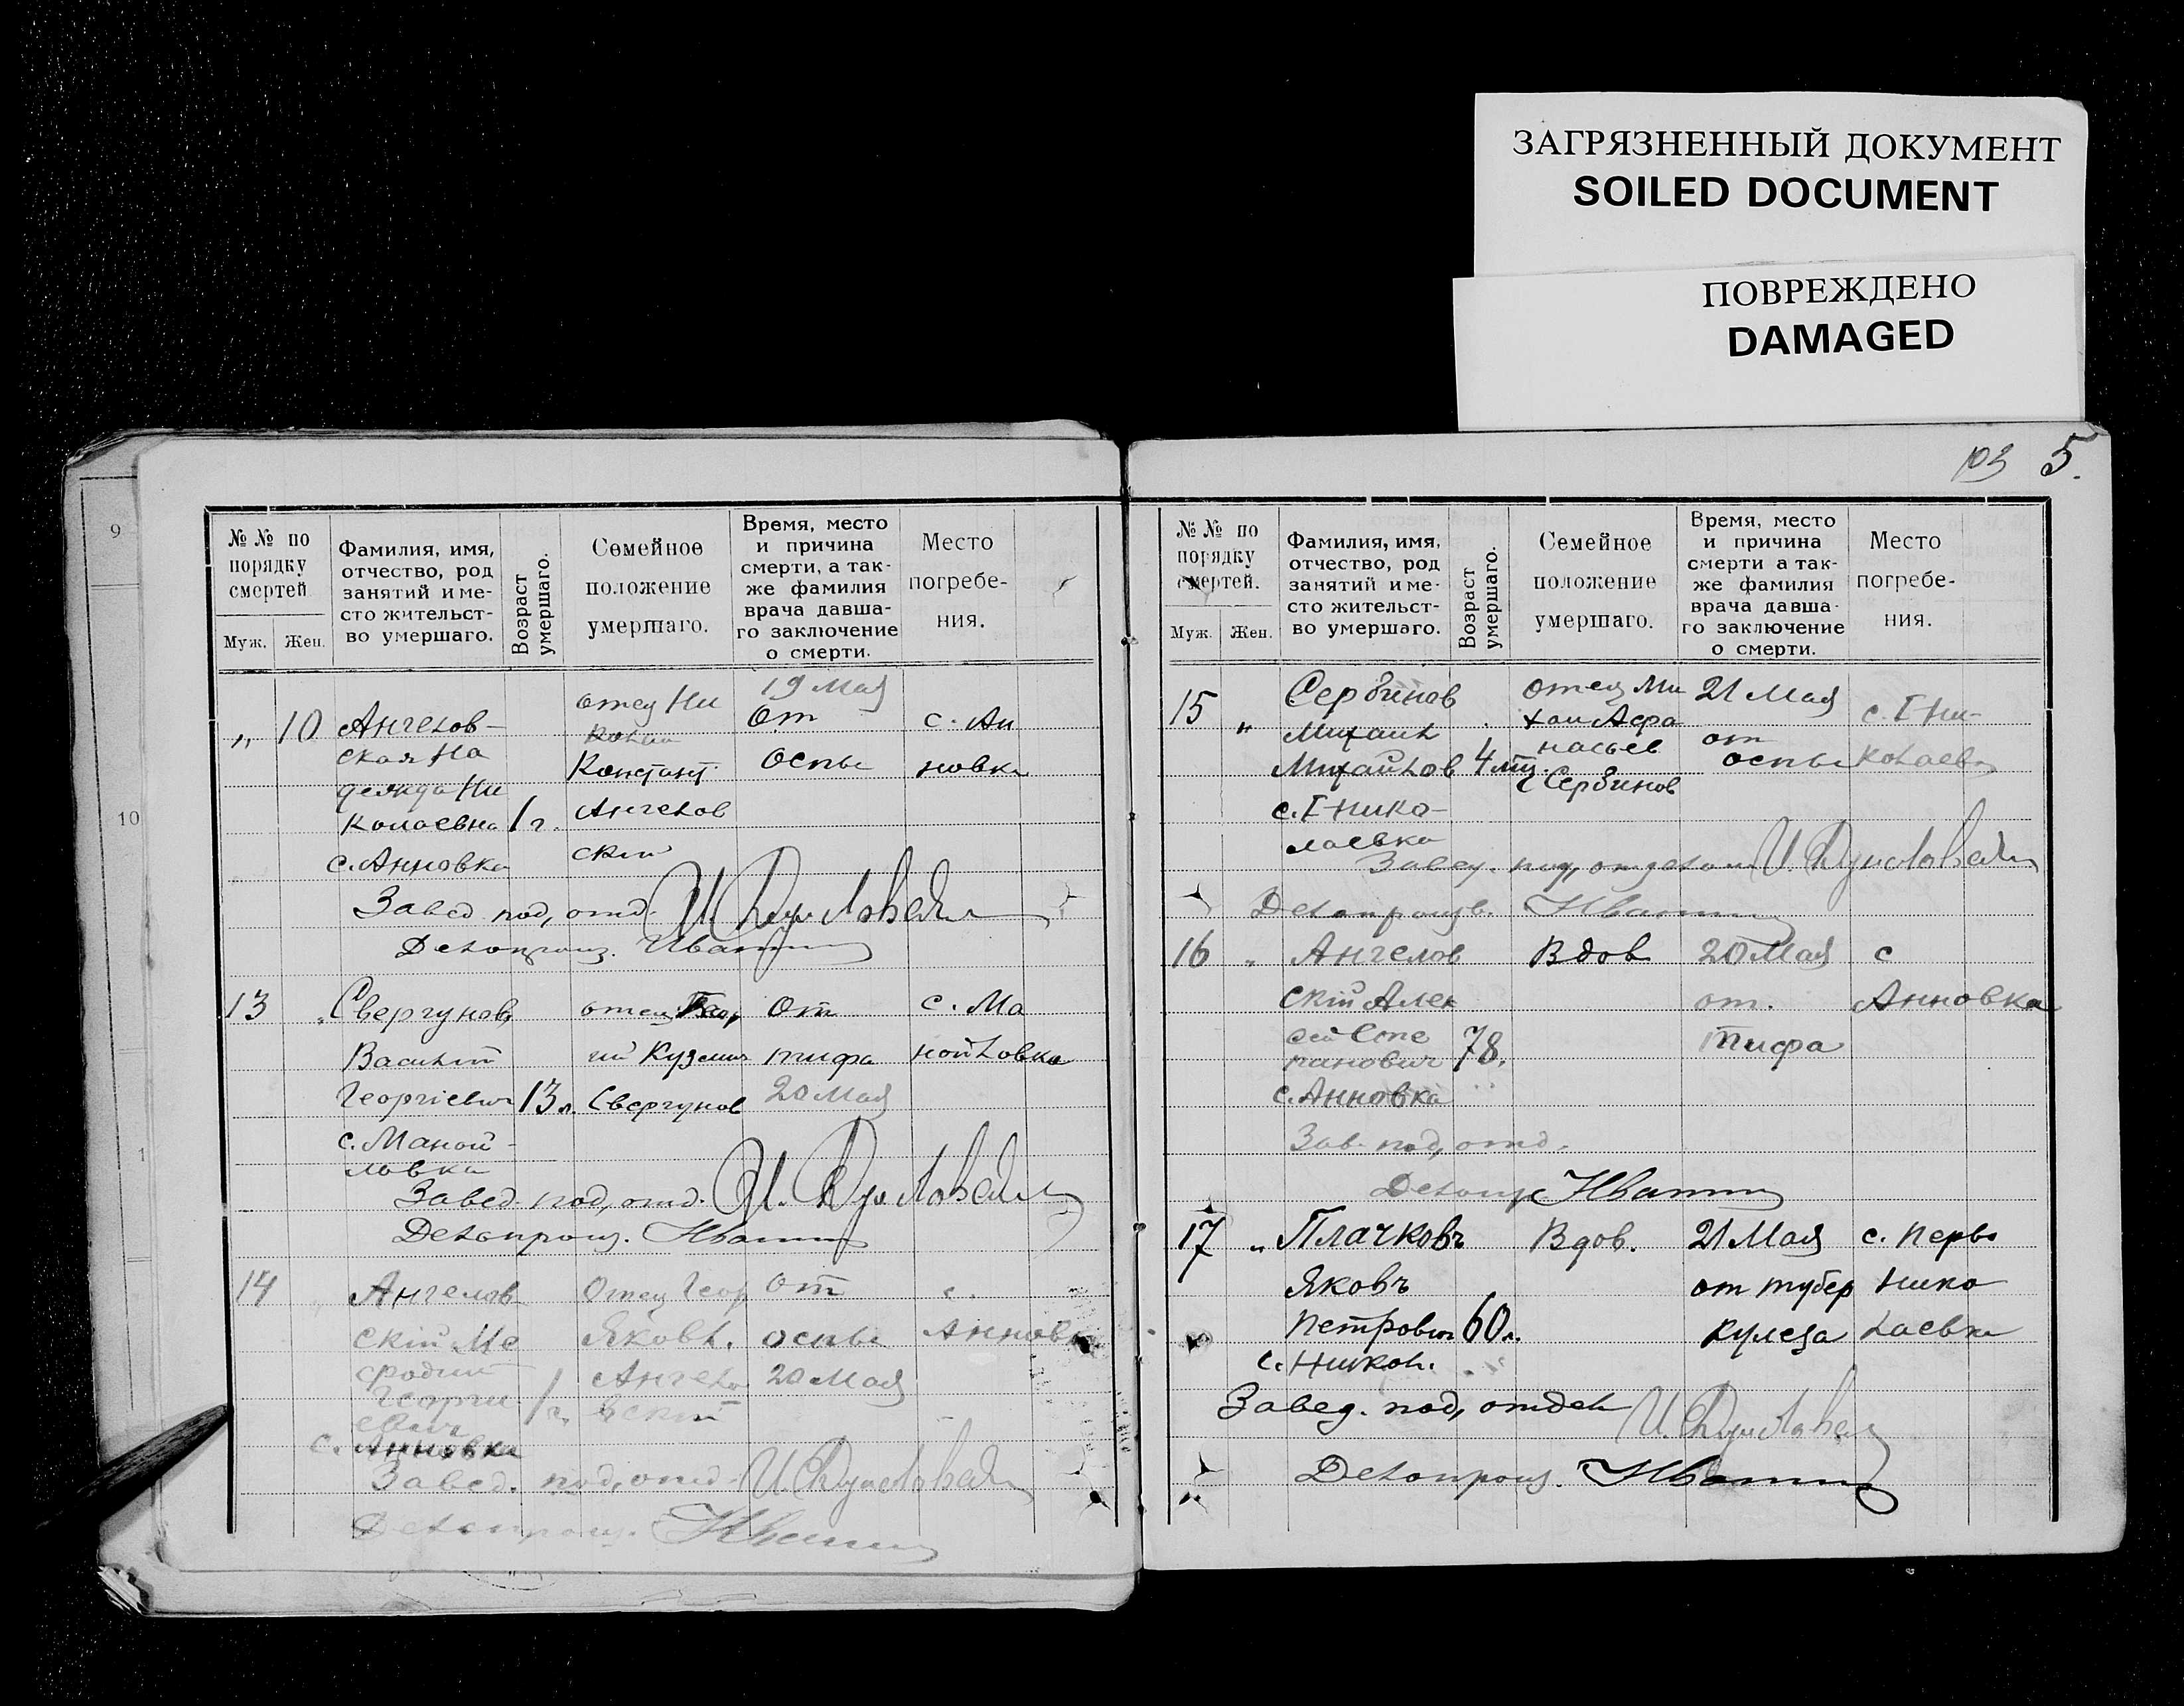 ЗАГРЯЗНЕННЫЙ ДОКУМЕНТ
SOILED DOCUMENT
ПОВРЕЖДЕНО
DAMAGED
9
10
1
№ № по
порядку
смертей
Муж. Жен.
Фамилия, имя,
отчество, род
занятий и ме-
сто жительст-
во умершаго.
Возраст
умершаго.
Семейное
положение
умершаго.
Время, место
и причина
смерти, а так-
же фамилия
врача давша-
го заключение
о смерти.
Место
погребе-
ния.
„ 10
Ангелов-
ская На
дежда Ни
колаевна
с. Анновка
1 г.
отец Ни
Констант.
Ангелов
скій
19 Мая
от
оспы
с. Ан
новка
Завед под, отд.
Делопроиз.
13 „
Свергунов
Василій
Георгіевич
с. Маной-
ловка
13 л.
отец Геор
гий Кузмич
Свергунов
от
тифа
20 Мая
с. Ма
нойловка
Завед. под, отд.
Делопроиз.
14 „
Ангелов
скій Ме
фодий
Георги
евич
с. Анновка
1 г.
Отец Геор
Яковл.
Ангело
вский
от
оспы
20 Мая
с.
Анновка
Завед. под, отд.
Делопроиз.
103 5.
№ № по
порядку
смертей.
Муж. Жен.
Фамилия, имя,
отчество, род
занятий и ме-
сто жительст-
во умершаго.
Возраст
умершаго.
Семейное
положение
умершаго.
Время, место
и причина
смерти а так-
же фамилия
врача давша-
го заключение
о смерти.
Место
погребе-
ния.
15 „
Сербинов
Михаил
Михайлов
с. I Нико-
лаевка
4 мц.
отец Ми
хаи Афа
насьев
Сербинов
21 Мая
от
оспы
с. I Ни-
колаевка
Завед. под, отделом
Делопроизв.
16 „
Ангелов
скій Алек
сей Сте
панович
с. Анновка
78.
Вдов
20 Мая
от.
тифа
с
Анновка
Зав. под, отд.
Делопр
17 „
Плачковъ
Яковъ
Петрович
с. Никол.
60 л.
Вдов.
21 Мая
от тубер
кулеза
с. Перво
Нико
лаевка
Завед. под, отдел
Делопроиз.